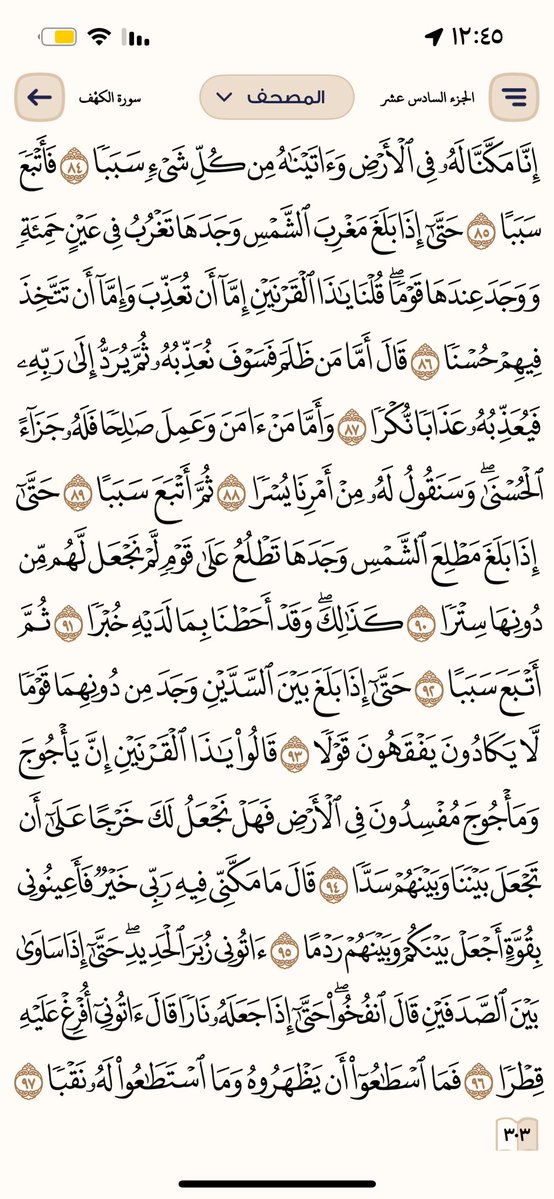 ١٢:٤٥
الجزء السادس عشر المصحف سورة الكهف
إِنَّا مَكَّنَّا لَهُۥ فِي ٱلۡأَرۡضِ وَءَاتَيۡنَٰهُ مِن كُلِّ شَيۡءٖ سَبَبٗا ٨٤ فَأَتۡبَعَ
سَبَبًا ٨٥ حَتَّىٰٓ إِذَا بَلَغَ مَغۡرِبَ ٱلشَّمۡسِ وَجَدَهَا تَغۡرُبُ فِي عَيۡنٍ حَمِئَةٖ
وَوَجَدَ عِندَهَا قَوۡمٗاۖ قُلۡنَا يَٰذَا ٱلۡقَرۡنَيۡنِ إِمَّآ أَن تُعَذِّبَ وَإِمَّآ أَن تَتَّخِذَ
فِيهِمۡ حُسۡنٗا ٨٦ قَالَ أَمَّا مَن ظَلَمَ فَسَوۡفَ نُعَذِّبُهُۥ ثُمَّ يُرَدُّ إِلَىٰ رَبِّهِۦ
فَيُعَذِّبُهُۥ عَذَابٗا نُّكۡرٗا ٨٧ وَأَمَّا مَنۡ ءَامَنَ وَعَمِلَ صَٰلِحٗا فَلَهُۥ جَزَآءً
ٱلۡحُسۡنَىٰۖ وَسَنَقُولُ لَهُۥ مِنۡ أَمۡرِنَا يُسۡرٗا ٨٨ ثُمَّ أَتۡبَعَ سَبَبًا ٨٩ حَتَّىٰٓ
إِذَا بَلَغَ مَطۡلِعَ ٱلشَّمۡسِ وَجَدَهَا تَطۡلُعُ عَلَىٰ قَوۡمٖ لَّمۡ نَجۡعَل لَّهُم مِّن
دُونِهَا سِتۡرٗا ٩٠ كَذَٰلِكَۖ وَقَدۡ أَحَطۡنَا بِمَا لَدَيۡهِ خُبۡرٗا ٩١ ثُمَّ
أَتۡبَعَ سَبَبًا ٩٢ حَتَّىٰٓ إِذَا بَلَغَ بَيۡنَ ٱلسَّدَّيۡنِ وَجَدَ مِن دُونِهِمَا قَوۡمٗا
لَّا يَكَادُونَ يَفۡقَهُونَ قَوۡلٗا ٩٣ قَالُواْ يَٰذَا ٱلۡقَرۡنَيۡنِ إِنَّ يَأۡجُوجَ
وَمَأۡجُوجَ مُفۡسِدُونَ فِي ٱلۡأَرۡضِ فَهَلۡ نَجۡعَلُ لَكَ خَرۡجًا عَلَىٰٓ أَن
تَجۡعَلَ بَيۡنَنَا وَبَيۡنَهُمۡ سَدّٗا ٩٤ قَالَ مَا مَكَّنِّي فِيهِ رَبِّي خَيۡرٞ فَأَعِينُونِي
بِقُوَّةٍ أَجۡعَلۡ بَيۡنَكُمۡ وَبَيۡنَهُمۡ رَدۡمًا ٩٥ ءَاتُونِي زُبَرَ ٱلۡحَدِيدِۖ حَتَّىٰٓ إِذَا سَاوَىٰ
بَيۡنَ ٱلصَّدَفَيۡنِ قَالَ ٱنفُخُواْۖ حَتَّىٰٓ إِذَا جَعَلَهُۥ نَارٗا قَالَ ءَاتُونِيٓ أُفۡرِغۡ عَلَيۡهِ
قِطۡرٗا ٩٦ فَمَا ٱسۡطَٰعُوٓاْ أَن يَظۡهَرُوهُ وَمَا ٱسۡتَطَٰعُواْ لَهُۥ نَقۡبٗا ٩٧
٣٠٣